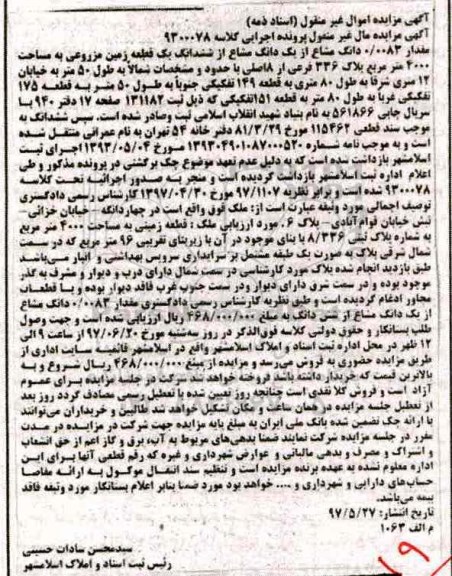 آگهی مزایده اموال غیر منقول (اسناد ذمه)
آگهی مزایده مال غیر منقول پرونده اجرایی کلاسه ۹۳۰۰۰۷۸
مقدار ۰/۰۰۸۳ دانگ مشاع از یک دانگ مشاع از ششدانگ یک قطعه زمین مزروعی به مساحت
۴۰۰۰ متر مربع پلاک ۳۳۶ فرعی از ۸اصلی با حدود و مشخصات شمالاً به طول ۵۰ متر به خیابان
۱۲ متری شرقا به طول ۸۰ متری به قطعه ۱۴۹ تفکیکی جنوباً به طول ۵۰ متر به قطعه ۱۷۵
تفکیکی غربا به طول ۸۰ متر به قطعه ۱۵۱تفکیکی که ذیل ثبت ۱۳۱۱۸۲ صفحه ۱۷ دفتر ۹۴۰ با
سریال چاپی ۵۶۱۸۶۶ به نام بنیاد شهید انقلاب اسلامی ثبت وصادر شده است. سپس ششدانگ به
موجب سند قطعی ۱۱۵۴۶۲ مورخ ۸۱/۳/۲۹ دفتر خانه ۵۴ تهران به نام عمرانی منتقل شده
است و به موجب نامه شماره ۱۳۹۳۰۴۹۰۱۰۸۷۰۰۰۵۲۰ مورخ ۱۳۹۳/۰۵/۰۴ اجرای ثبت
اسلامشهر بازداشت شده است که به دلیل عدم تعهد موضوع چک برگشتی در پرونده مذکور و طی
اعلام اداره ثبت اسلامشهر بازداشت گردیده است و منجر به صدور اجرائیه تحت کلاسه
۹۳۰۰۰۷۸ شده است و برابر نظریه ۹۷/۱۱۰۷ مورخ ۱۳۹۷/۰۴/۳۰ کارشناس رسمی دادگستری
توصیف اجمالی مورد وثیقه عبارت است از: ملک فوق واقع است در چهاردانگه - خیابان خزائی -
نبش خیابان قوام‌آبادی- پلاک ۶. مورد ارزیابی ملک : قطعه زمینی به مساحت ۴۰۰۰ متر مربع
به شماره پلاک ثبتی ۸/۳۳۶ با بنای موجود در آن با زیربنای تقریبی ۹۶ متر مربع که در سمت
شمال شرقی پلاک به صورت یک طبقه مشتمل بر سرایداری سرویس بهداشتی و انبار می‌باشد
طبق بازدید انجام شده پلاک مورد کارشناسی در سمت شمال دارای درب و دیوار و مشرف به گذر
موجود بوده و در سمت شرق دارای دیوار ودر سمت جنوب غرب فاقد دیوار بوده و با قطعات
مجاور ادغام گردیده است و طبق نظریه کارشناس رسمی دادگستری مقدار ۰/۰۰۸۳ دانگ مشاع
از یک دانگ مشاع از شش دانگ به مبلغ ۴۶۸/۰۰۰/۰۰۰ ریال ارزیابی شده است و جهت وصول
طلب بستانکار و حقوق دولتی کلاسه فوق‌الذکر در روز سه‌شنبه مورخ ۹۷/۰۶/۲۰ از ساعت ۹ الی
۱۲ ظهر در محل اداره ثبت اسناد و املاک اسلامشهر واقع در اسلامشهر قائمیه سایت اداری از
طریق مزایده حضوری به فروش می‌رسد و مزایده از مبلغ ۴۶۸/۰۰۰/۰۰۰ ریال شروع و به
بالاترین قیمت که خریدار داشته باشد فروخته خواهد شد شرکت در جلسه مزایده برای عموم
آزاد است و فروش کلا نقدی است چنانچه روز تعیین شده با تعطیل رسمی مصادف گردد روز بعد
از تعطیل جلسه مزایده در همان ساعت و مکان تشکیل خواهد شد طالبین و خریداران می‌توانند
با ارائه چک تضمین شده بانک ملی ایران به مبلغ پایه مزایده جهت شرکت در مزایده در مدت
مقرر در جلسه مزایده شرکت نمایند ضمنا بدهی‌های مربوط به آب، برق و گاز اعم از حق انشعاب
و اشتراک و مصرف و بدهی مالیاتی و عوارض شهرداری و غیره که رقم قطعی آنها برای این
اداره معلوم نشده به عهده برنده مزایده است و تنظیم سند انتقال موکول به ارائه مفاصا
حساب‌های دارایی و شهرداری و .... خواهد بود مورد ضمنا بنابر اعلام بستانکار مورد وثیقه فاقد
بیمه می‌باشد.
تاریخ انتشار: ۹۷/۵/۲۷
م الف ۱۰۶۳
سیدمحسن سادات حسینی
رئیس ثبت اسناد و املاک اسلامشهر